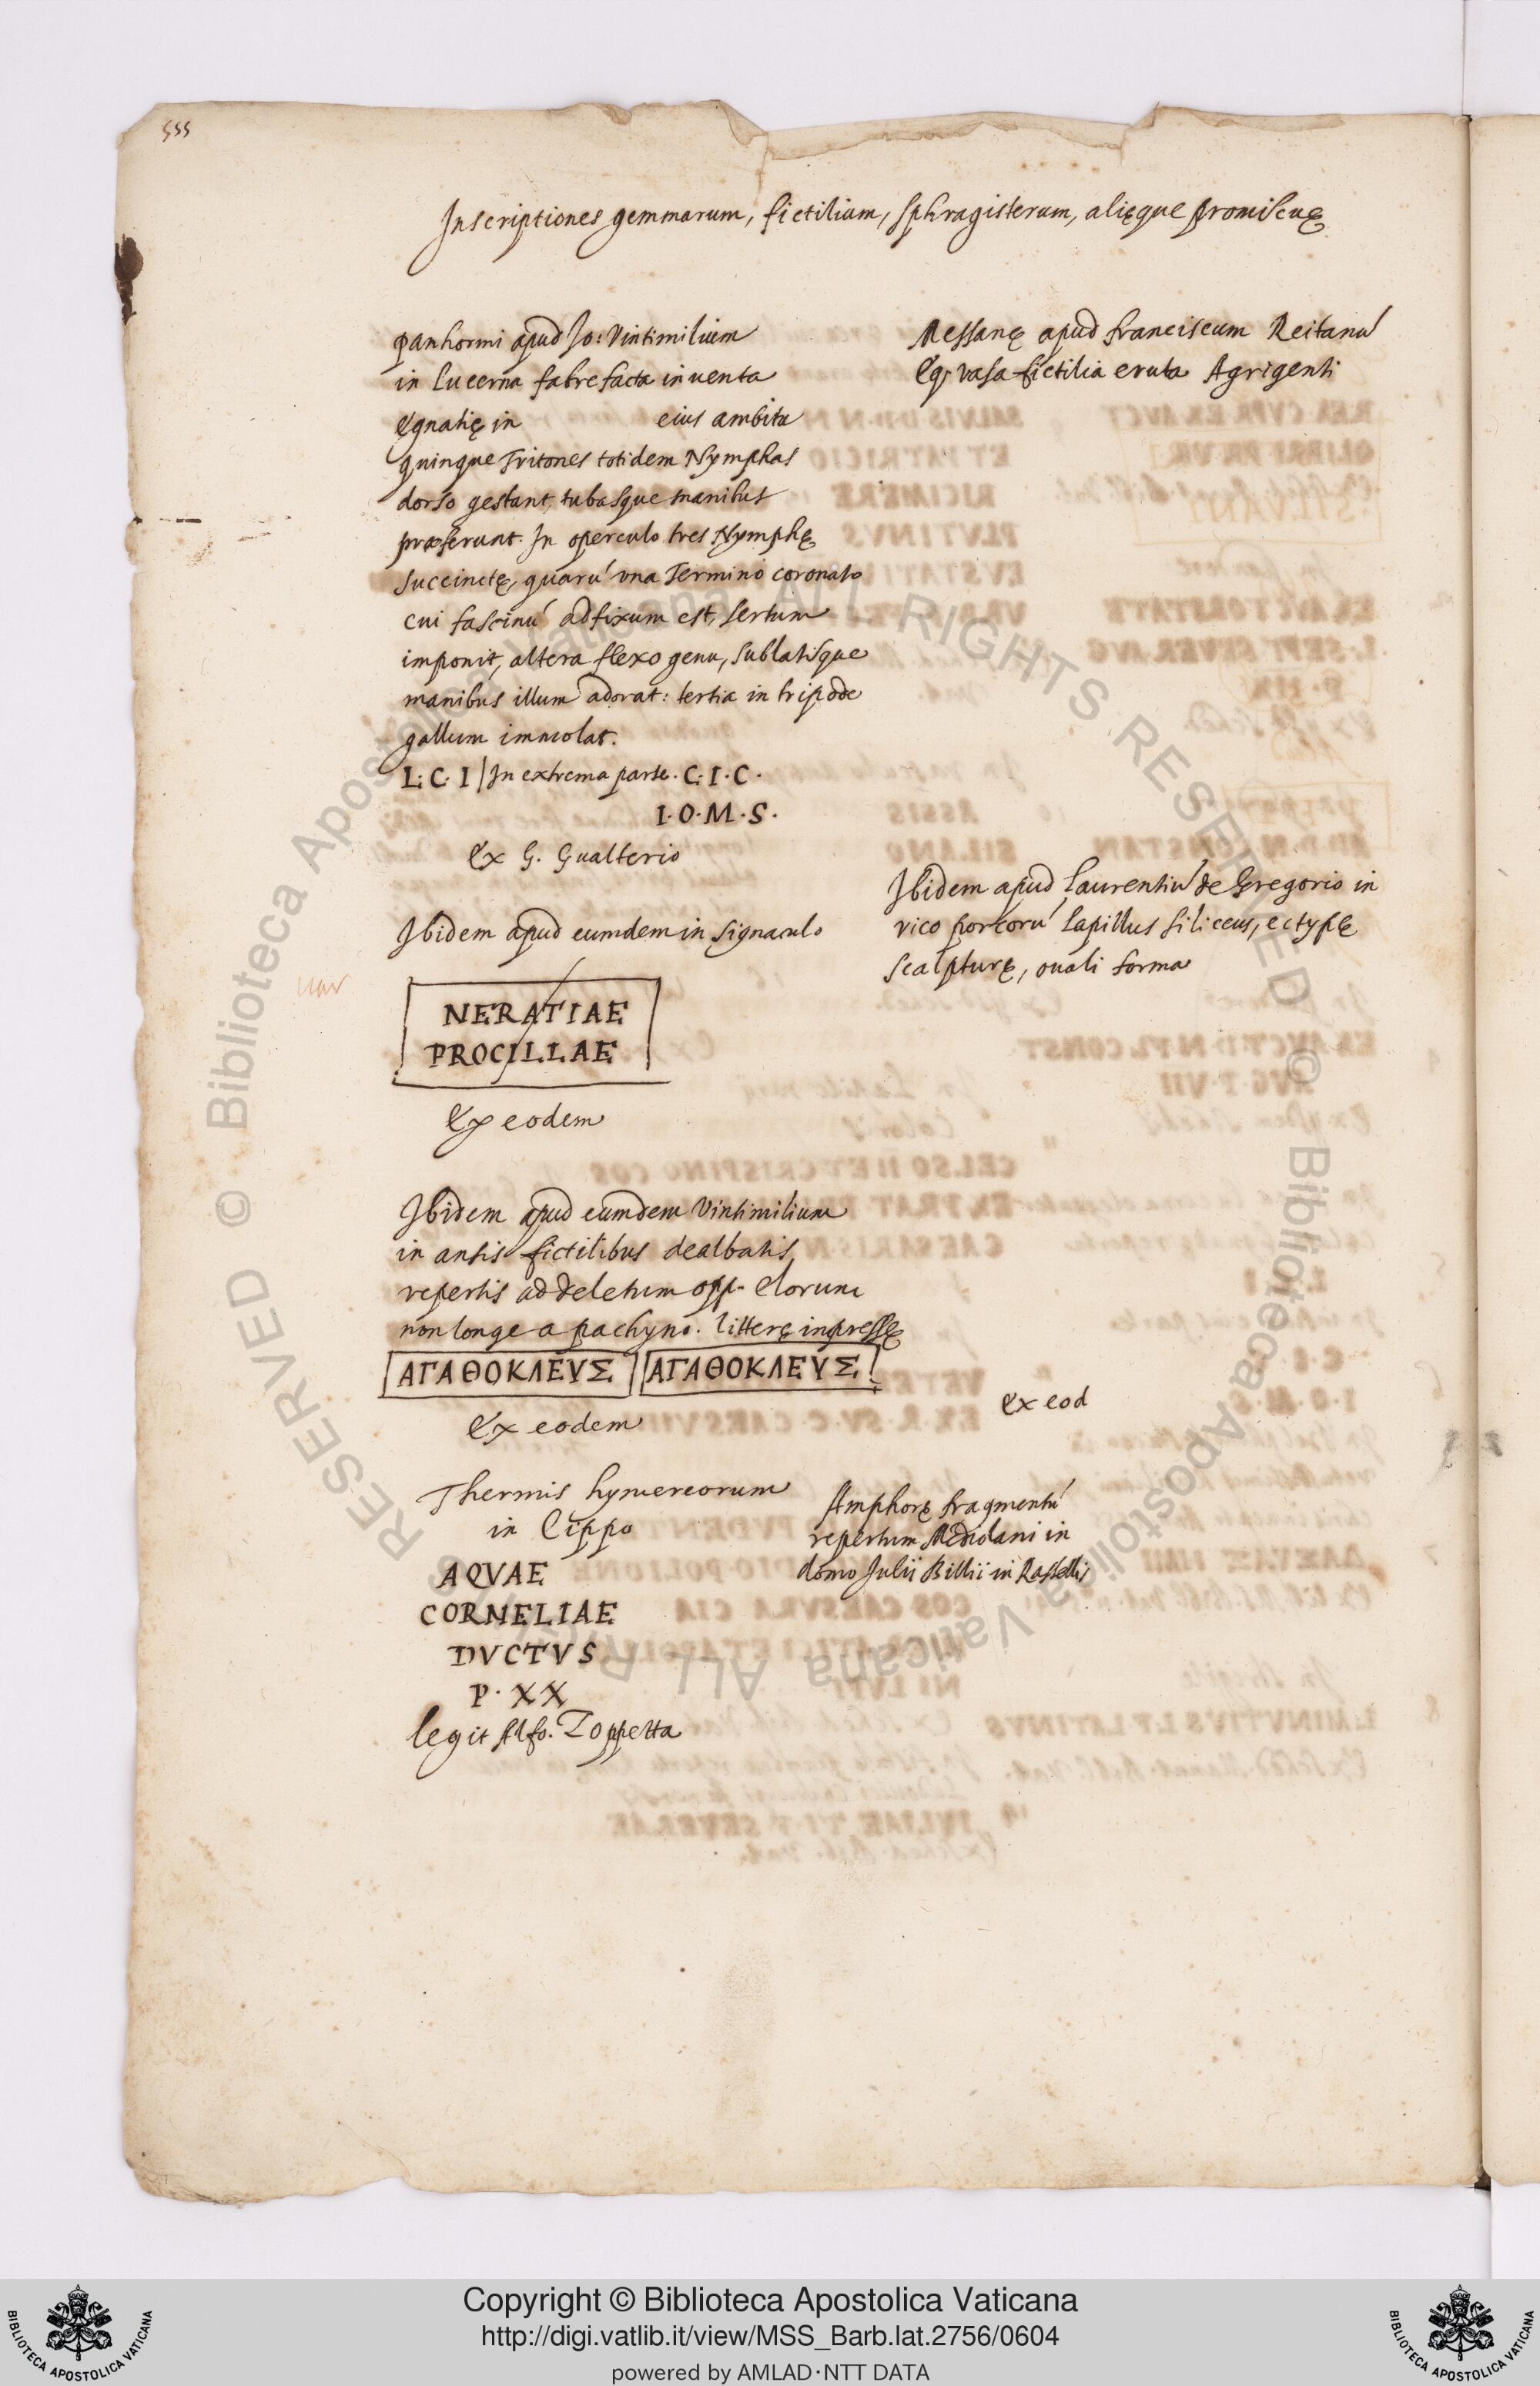 555
Inscriptiones gemmarum, fictilium, sphragisterum, alięque promiscuę
Panhormi apud Jo: Vintimilium
in Lucerna fabrefacta inuenta
Egnatię in eius ambitu
quinque Tritones totidem Nymphas
dorso gestant, tubasque manibus
præferunt. In operculo tres Nymphę
succinctę, quarú vna Termino coronato
cui fascinú adfixum est, sertum
imponit, altera flexo genu, sublatisque
manibus illum adorat: tertia in tripode
gallum immolat.
L. C. I | In extrema parte. C. I. C.
I. O. M. S.
Ex G. Gualterio
Ibidem apud eumdem in signaculo
NERATIAE
PROCILLAE
Ex eodem
Ibidem apud eumdem Vintimilium
in antis fictilibus dealbatis
repertis ad deletum opp. Elorum
non longe a pachyno. litterę inpressę
ΑΓΑΘΟΚΛΕΥΣ ΑΓΑΘΟΚΛΕΥΣ
Ex eodem
Thermis hymereorum
in Cippo
AQVAE
CORNELIAE
DVCTVS
P. XX
legit Alfo. Zoppetta
Messanę apud franciscum Reitanú
Eq. vasa fictilia eruta Agrigenti
Ibidem apud Laurentiú de Gregorio in
vico porcorú lapillus siliceus, ectypę
scalpturę, ouali forma
Ex eod
Amphorę fragmentú
repertum Mediolani in
domo Julii Billii in Rastellis
© Biblioteca Apostolica Vaticana ALL RIGHTS RESERVED
© Biblioteca Apostolica Vaticana ALL RIGHTS RESERVED
BIBLIOTECA APOSTOLICA VATICANA
Copyright © Biblioteca Apostolica Vaticana
http://digi.vatlib.it/view/MSS_Barb.lat.2756/0604
powered by AMLAD·NTT DATA
BIBLIOTECA APOSTOLICA VATICANA